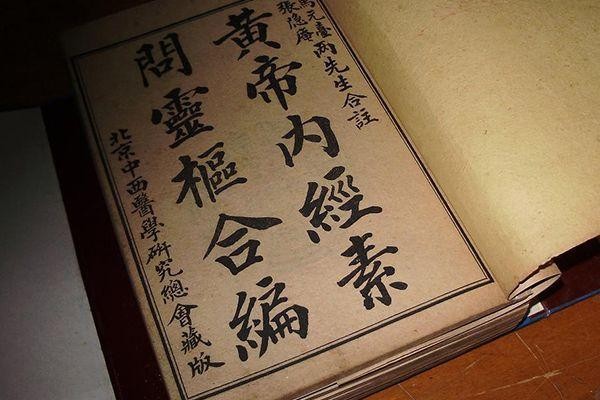 馬元臺
張隐庵兩先生合註
黃帝內經素
問靈樞合編
北京中西醫學硏究總會藏版